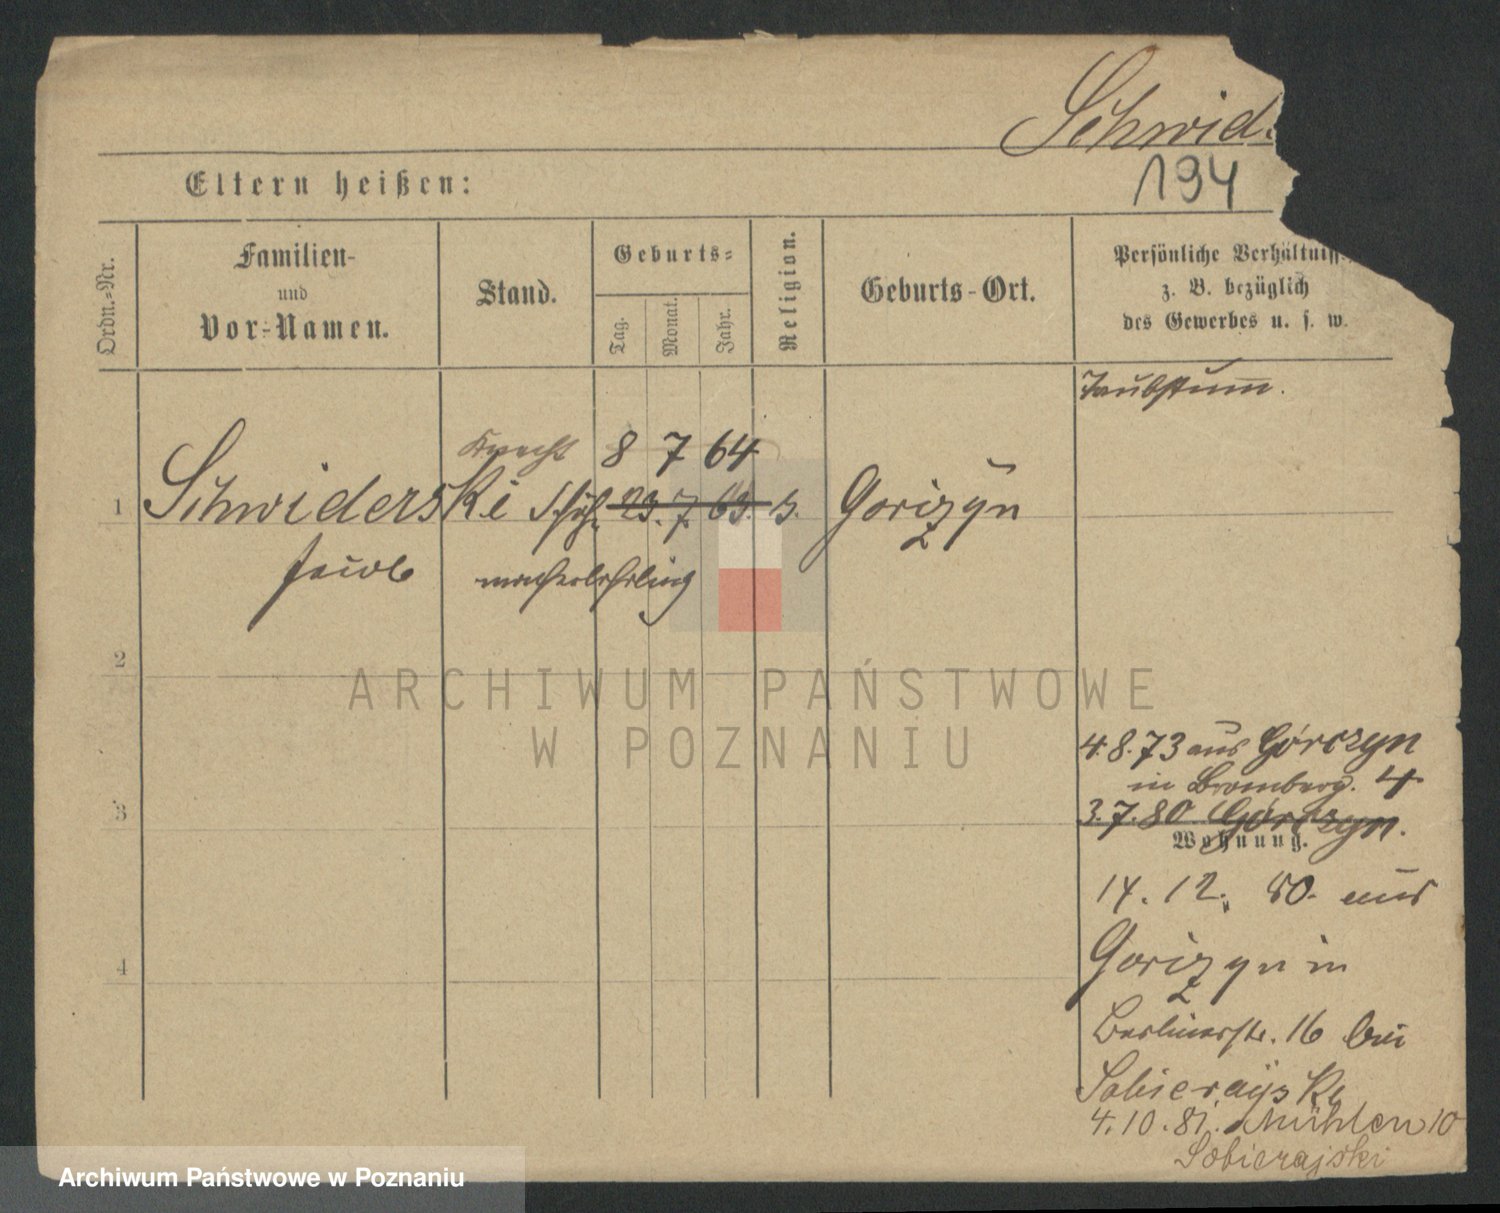 Schwid
194
Eltern heißen:
Ordn.-Nr.
Familien-
und
Vor-Namen.
Stand.
Geburts-
Tag.
Monat.
Jahr.
Religion.
Geburts-Ort.
Persönliche Verhältniss
z. B. bezüglich
des Gewerbes u. s. w.
Taubstumm.
Knecht 8 7 64
1 Schwiderski Schuh- 23. 7. 63. Gorczyn
Jacob macherlehrling
2
ARCHIWUM PAŃSTWOWE
W POZNANIU
4.8.73 aus Górczyn
in Bromberg. 4
3
3.7.80 Górczyn.
Wohnung.
14. 12. 80. aus
4
Gorczyn in
Berlinerstr. 16 bei
Sobierayski
4.10.81. Mühlen 10
Sobierajski
Archiwum Państwowe w Poznaniu